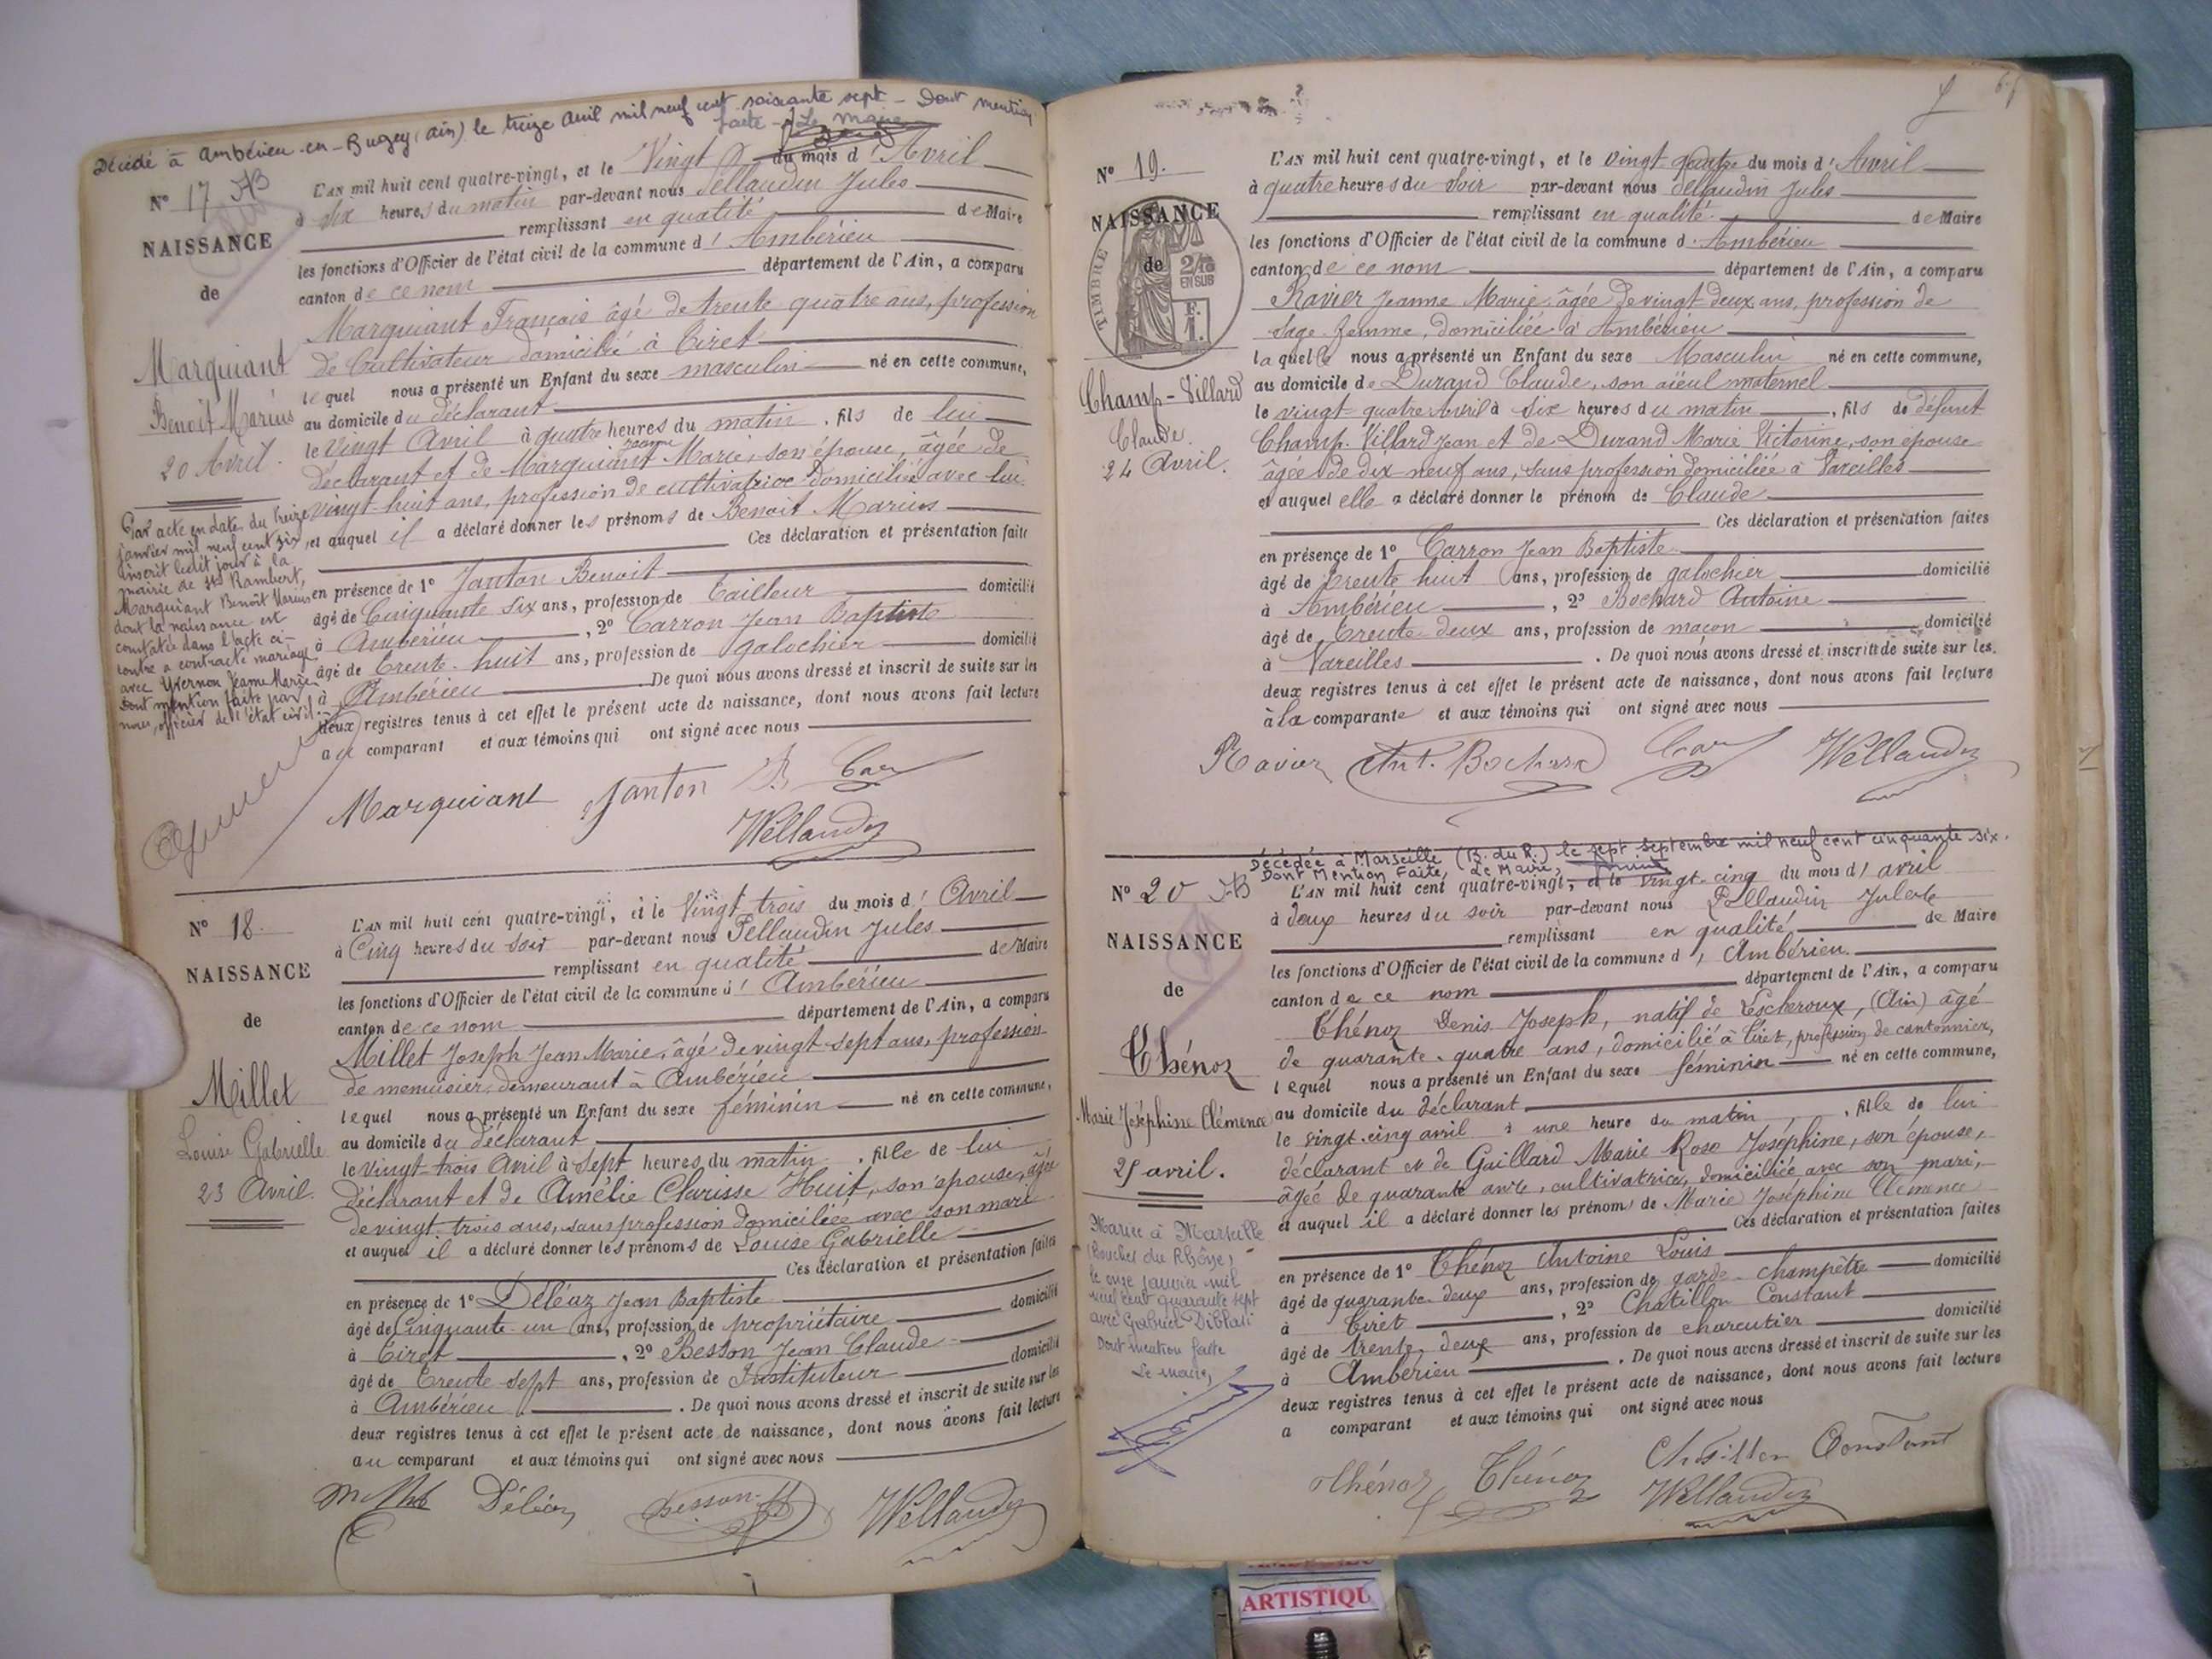 Décédé à Ambérieu-en-Bugey (Ain) le treize Avril mil neuf cent soixante sept - Dont mention
faite - Le Maire
N° 17
NAISSANCE
de
Marquiant
Benoit Marius
20 Avril.
Par acte en date du treize
janvier mil neuf cent six
inscrit ledit jour à la
mairie de St Rambert,
Marquiant Benoît Marius
dont la naissance est
constatée dans l'acte ci-
contre a contracté mariage
avec Yvernon Jeanne Marie
Dont mention faite par
nous, officier de l'état civil.
L'an mil huit cent quatre-vingt, et le Vingt du mois d'Avril
à six heures du matin par-devant nous Pellaudin Jules
remplissant en qualité de Maire
les fonctions d'Officier de l'état civil de la commune d'Ambérieu
canton de ce nom département de l'Ain, a comparu
Marquiant François âgé de trente quatre ans, profession
de Cultivateur domicilié à Tiret
lequel nous a présenté un Enfant du sexe masculin né en cette commune,
au domicile du déclarant
le Vingt Avril à quatre heures du matin, fils de lui
déclarant et de Marquiant Jeanne Marie, son épouse, âgée de
vingt-huit ans, profession de cultivatrice domiciliée avec lui
et auquel il a déclaré donner les prénoms de Benoit Marius
Ces déclaration et présentation faites
en présence de 1° Janton Benoit
âgé de Cinquante six ans, profession de Tailleur domicilié
à Ambérieu, 2° Carron Jean Baptiste
âgé de Trente-huit ans, profession de galochier domicilié
à Ambérieu De quoi nous avons dressé et inscrit de suite sur les
deux registres tenus à cet effet le présent acte de naissance, dont nous avons fait lecture
au comparant et aux témoins qui ont signé avec nous
Marquiant Janton B. Car
Pellaudin
N° 18.
NAISSANCE
de
Millet
Louise Gabrielle
23 Avril.
L'an mil huit cent quatre-vingt, et le Vingt trois du mois d'Avril
à Cinq heures du soir par-devant nous Pellaudin Jules
remplissant en qualité de Maire
les fonctions d'Officier de l'état civil de la commune d'Ambérieu
canton de ce nom département de l'Ain, a comparu
Millet Joseph Jean Marie, âgé de vingt-sept ans, profession
de menuisier, demeurant à Ambérieu
lequel nous a présenté un Enfant du sexe féminin né en cette commune,
au domicile du déclarant
le Vingt-trois Avril à Sept heures du matin, fille de lui
déclarant et de Amélie Clarisse Huit, son épouse, âgée
de vingt-trois ans, sans profession domiciliée avec son mari
et auquel il a déclaré donner les prénoms de Louise Gabrielle
Ces déclaration et présentation faites
en présence de 1° Déléaz Jean Baptiste
âgé de Cinquante-un ans, profession de propriétaire domicilié
à Tiret, 2° Besson Jean Claude
âgé de Trente-sept ans, profession de Instituteur domicilié
à Ambérieu. De quoi nous avons dressé et inscrit de suite sur les
deux registres tenus à cet effet le présent acte de naissance, dont nous avons fait lecture
au comparant et aux témoins qui ont signé avec nous
Millet Déléaz Besson Pellaudin
N° 19.
NAISSANCE
de
TIMBRE
2/10
EN SUS
F.
1.
Champ-Villard
Claude.
24 Avril.
L'an mil huit cent quatre-vingt, et le vingt-quatre du mois d'Avril
à quatre heures du Soir par-devant nous Pellaudin Jules
remplissant en qualité de Maire
les fonctions d'Officier de l'état civil de la commune d'Ambérieu
canton de ce nom département de l'Ain, a comparu
Ravier Jeanne Marie, âgée de vingt-deux ans, profession de
Sage-femme, domiciliée à Ambérieu
laquelle nous a présenté un Enfant du sexe Masculin né en cette commune,
au domicile de Durand Claude, son aïeul maternel
le vingt-quatre Avril à six heures du matin, fils de défunt
Champ-Villard Jean et de Durand Marie Victorine, son épouse
âgée de dix neuf ans, sans profession domiciliée à Vareilles
et auquel elle a déclaré donner le prénom de Claude
Ces déclaration et présentation faites
en présence de 1° Carron Jean Baptiste
âgé de Trente huit ans, profession de galochier domicilié
à Ambérieu, 2° Bochard Antoine
âgé de Trente-deux ans, profession de maçon domicilié
à Vareilles. De quoi nous avons dressé et inscrit de suite sur les
deux registres tenus à cet effet le présent acte de naissance, dont nous avons fait lecture
à la comparante et aux témoins qui ont signé avec nous
Ravier Ant. Bochard Car Pellaudin
Décédée à Marseille (B. du R.) le sept septembre mil neuf cent cinquante-six.
Dont Mention Faite, Le Maire,
N° 20
NAISSANCE
de
Thénoz
Marie Joséphine Clémence
25 avril.
Mariée à Marseille
(Bouches du Rhône)
le onze janvier mil
neuf cent quarante sept
avec Gabriel Diblasi
Dont mention faite
Le maire,
L'an mil huit cent quatre-vingt, et le vingt-cinq du mois d'avril
à deux heures du soir par-devant nous Pellaudin Jules
remplissant en qualité de Maire
les fonctions d'Officier de l'état civil de la commune d'Ambérieu
canton de ce nom département de l'Ain, a comparu
Thénoz Denis Joseph, natif de Lescheroux, (Ain) âgé
de quarante-quatre ans, domicilié à Tiret, profession de cantonnier,
lequel nous a présenté un Enfant du sexe féminin né en cette commune,
au domicile du déclarant
le vingt-cinq avril à une heure du matin, fille de lui
déclarant et de Gaillard Marie Rose Joséphine, son épouse,
âgée de quarante ans, cultivatrice, domiciliée avec son mari,
et auquel il a déclaré donner les prénoms de Marie Joséphine Clémence
Ces déclaration et présentation faites
en présence de 1° Thénoz Antoine Louis
âgé de quarante-deux ans, profession de garde-champêtre domicilié
à Tiret, 2° Chatillon Constant
âgé de trente-deux ans, profession de charcutier domicilié
à Ambérieu. De quoi nous avons dressé et inscrit de suite sur les
deux registres tenus à cet effet le présent acte de naissance, dont nous avons fait lecture
a comparant et aux témoins qui ont signé avec nous
Thénoz Thénoz Chatillon Constant
Pellaudin
ARTISTIQU